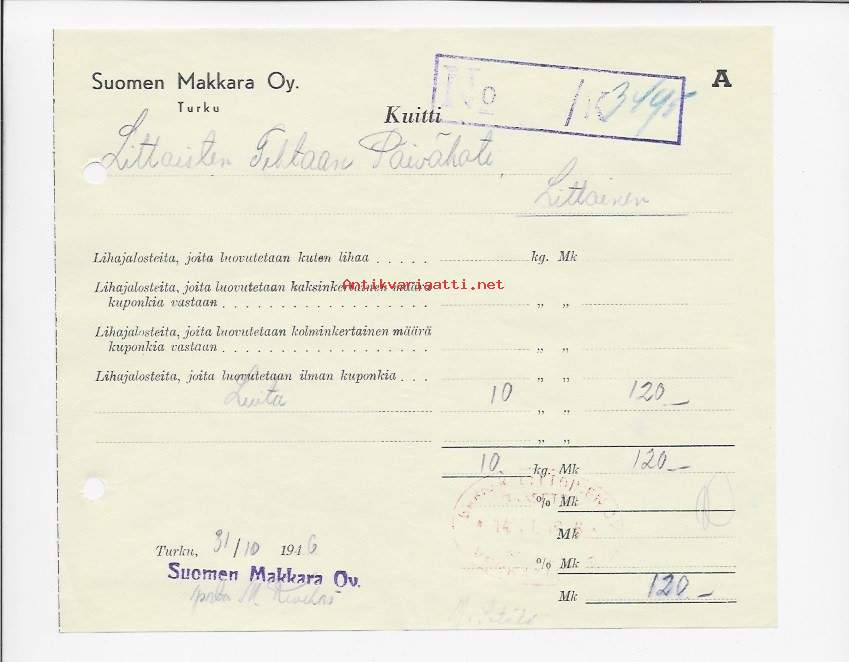 Suomen Makkara Oy.
Turku
A
No 1K 3495
Kuitti
Littoisten Tehtaan Päiväkoti
Littoinen
Lihajalosteita, joita luovutetaan kuten lihaa . . . . . kg. Mk
Antikvariaatti.net
Lihajalosteita, joita luovutetaan kaksinkertainen määrä
kuponkia vastaan . . . . . . . . . . . . . . . . „ „
Lihajalosteita, joita luovutetaan kolminkertainen määrä
kuponkia vastaan . . . . . . . . . . . . . . . . „ „
Lihajalosteita, joita luovutetaan ilman kuponkia . . . „ „
10 „ „ 120.–
„ „
10. kg. Mk 120.–
% Mk
Mk
Turku, 31/10 1946
% Mk
Suomen Makkara Oy.
Mk 120.–